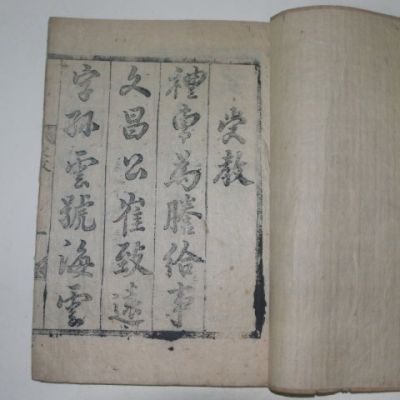 受教
禮曹爲謄給事
文昌公崔致遠
字孤雲號海雲